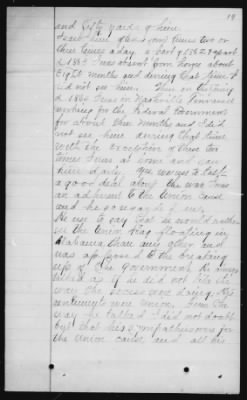 19
and fifty yards of him.
I saw him sometimes two or
three times a day. Early of 1862 & part
of 1863 I was absent from home about
Eight months and during that time I
did not see him. Then in the
of 1864 I was in Nashville Tennessee
working for the Federal Government
for about three months and I did
not see him during that time
with the exception of these two
times I was at home and saw
him daily. Yes, we used to talk
a good deal about the war. I was
an adherent to the Union Cause
and he so was
He use to say that he would rather
see the Union flag floating in
Alabama than any other and
was opposed to the breaking
up of the Government. He always
talked as if he did not like the
way the secess were doing. His
sentiments were Union, from the
way he talked I did not doubt
but that his sympathies were for
the Union cause and all his